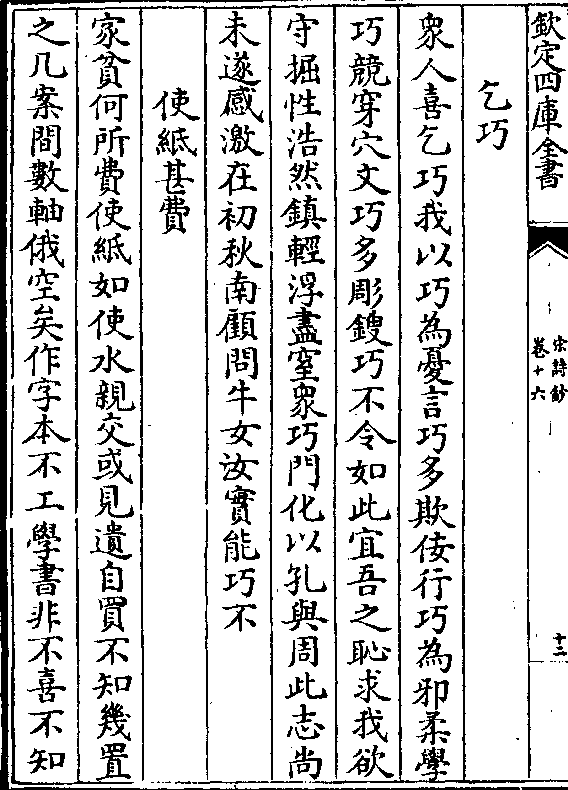 欽定四庫全書
宋詩鈔
卷十六
十三
乞巧
衆人喜乞巧我以巧為憂言巧多欺佞行巧為邪柔學
巧競穿穴文巧多彫鎪巧不令如此宜吾之恥求我欲
守掘性浩然鎮輕浮盡窒衆巧門化以孔與周此志尚
未遂感激在初秋南顧問牛女汝實能巧不
使紙甚費
家貧何所費使紙如使水親交或見遺自買不知幾置
之几案間數軸俄空矣作字本不工學書非不喜不知